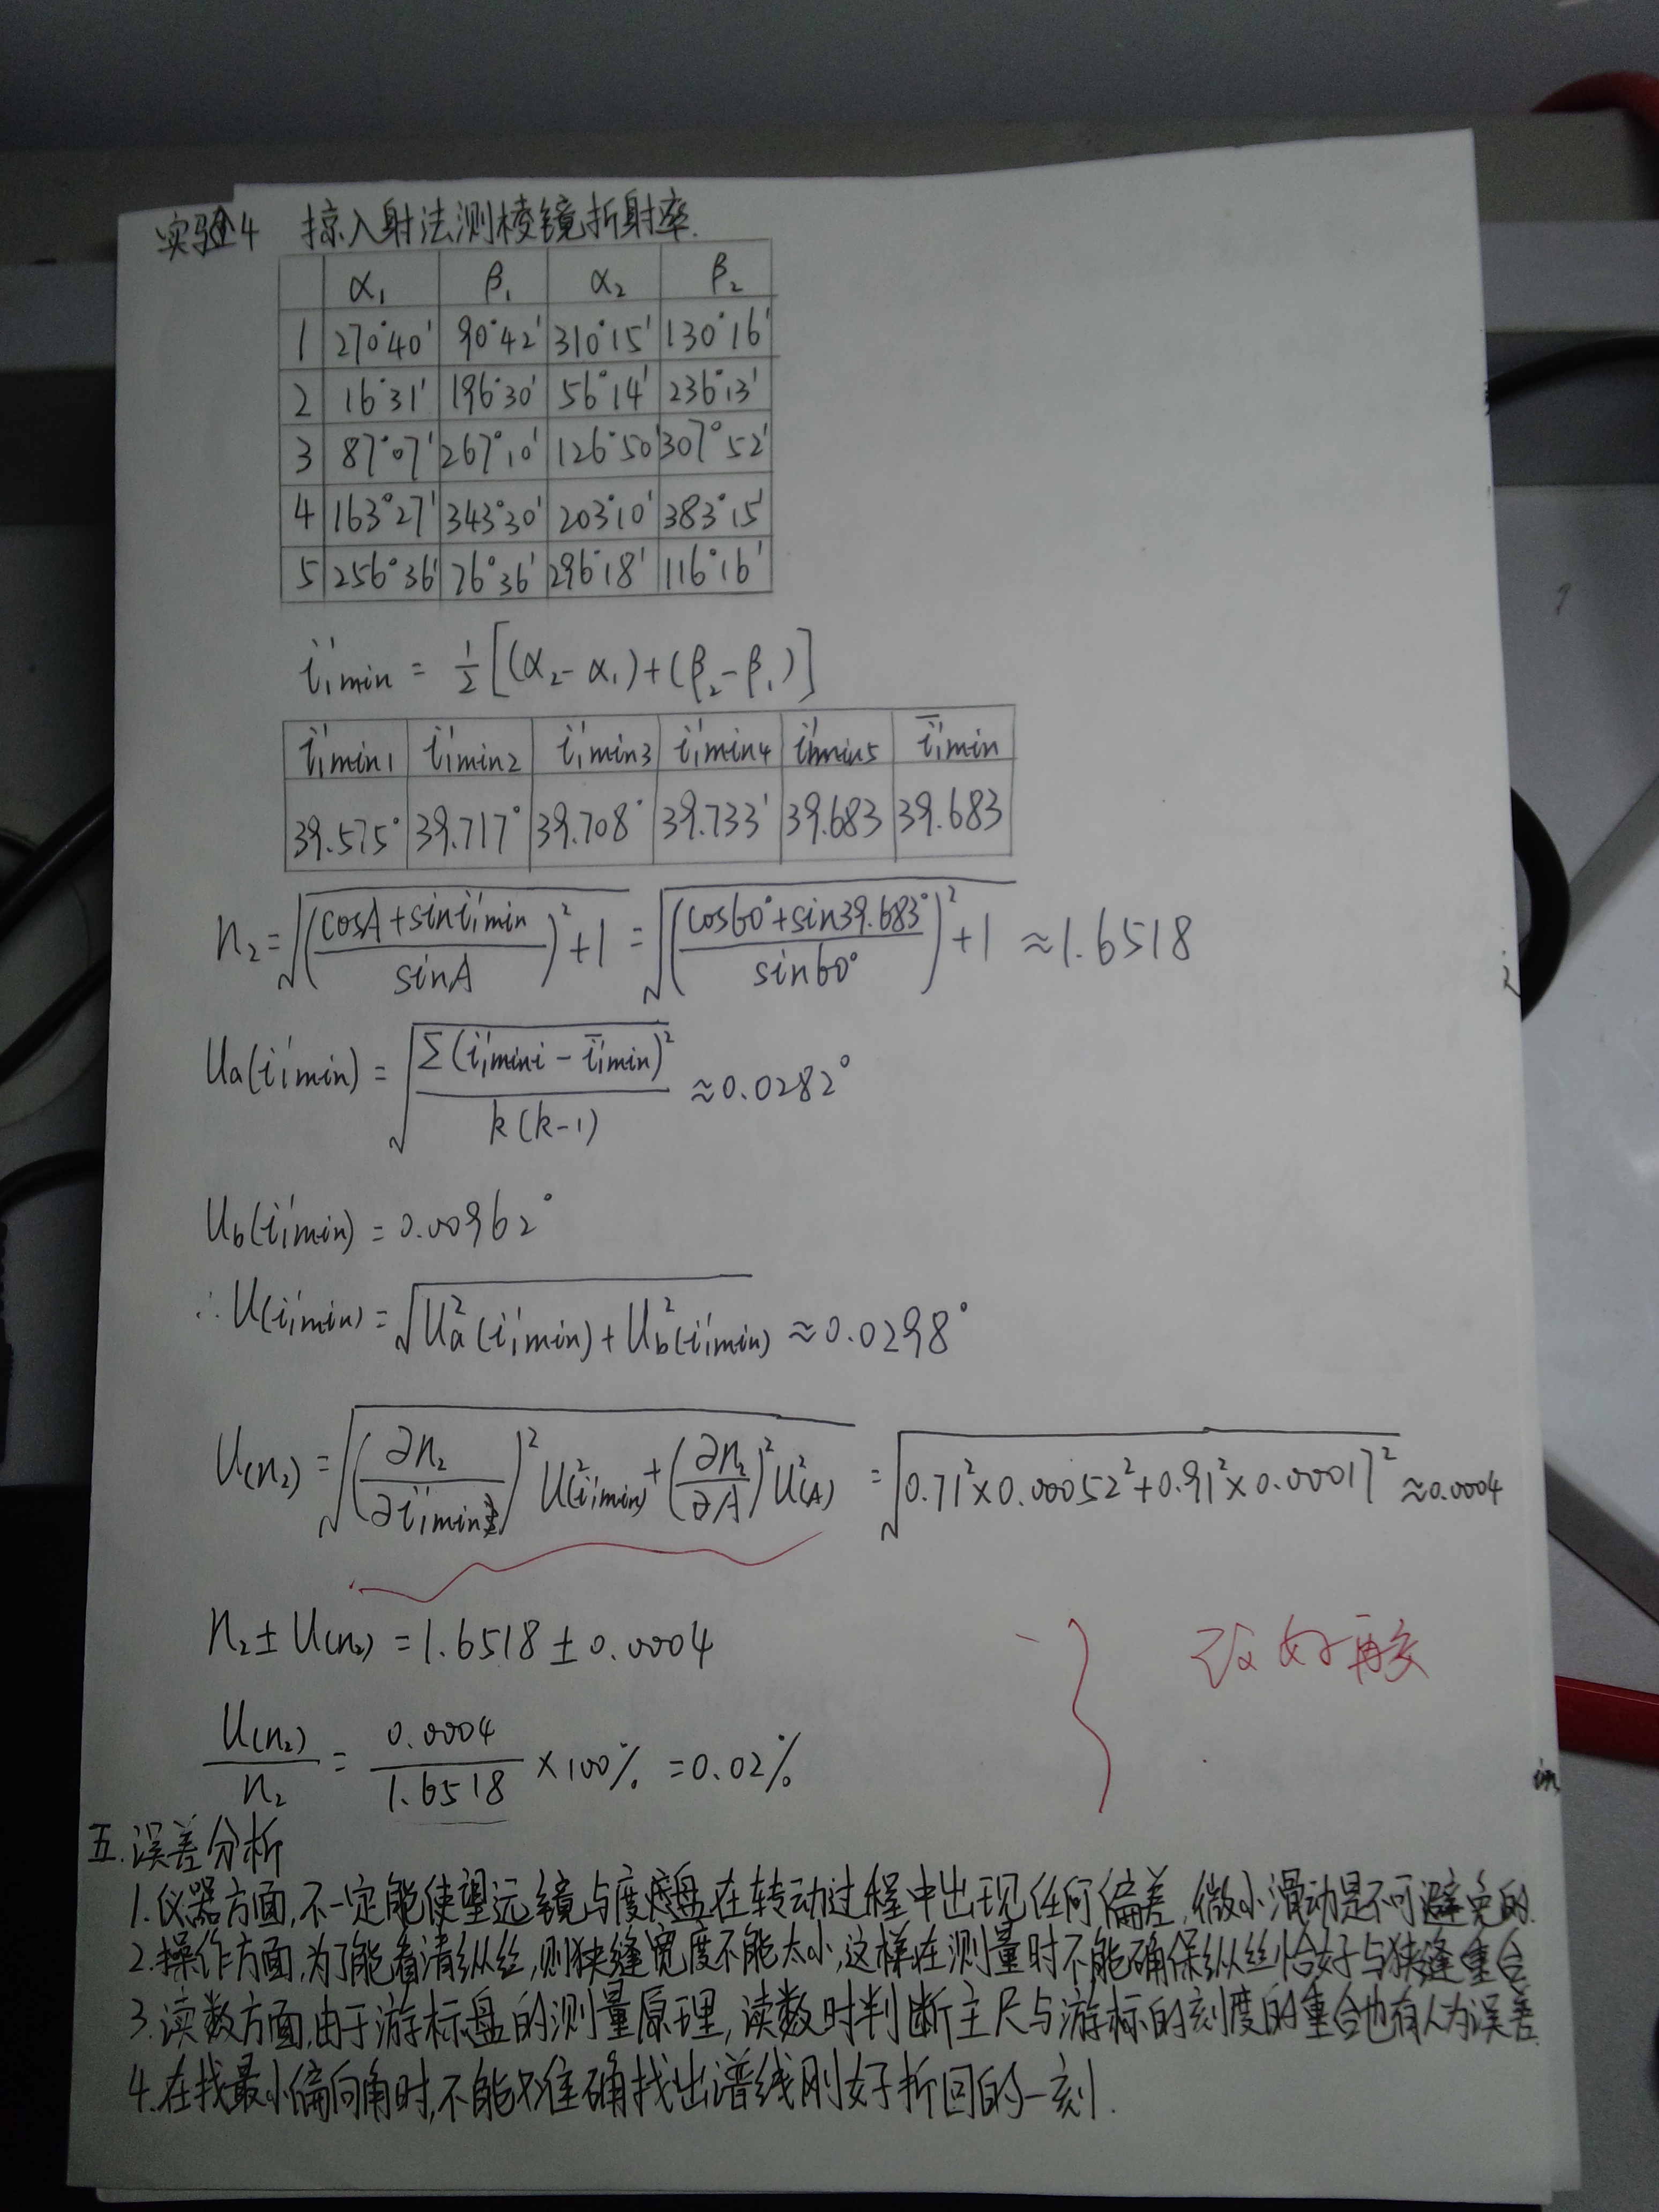 实验4 掠入射法测棱镜折射率.
α₁ β₁ α₂ β₂
1 270°40′ 90°42′ 310°15′ 130°16′
2 16°31′ 196°30′ 56°14′ 236°13′
3 87°07′ 267°10′ 126°50′ 307°52′
4 163°27′ 343°30′ 203°10′ 383°15′
5 256°36′ 76°36′ 296°18′ 116°16′
i₁′min = ½[(α₂-α₁)+(β₂-β₁)]
i₁′min1 i₁′min2 i₁′min3 i₁′min4 i₁′min5 i̅₁′min
39.575° 39.717° 39.708° 39.733′ 39.683 39.683
n₂=√(((cosA+sini₁′min)/sinA)²+1) = √(((cos60°+sin39.683°)/sin60°)²+1) ≈1.6518
Ua(i₁′min) = √(Σ(i₁′mini - i̅₁′min)²/(k(k-1))) ≈0.0282°
Ub(i₁′min) = 0.00962°
∴U(i₁′min) = √(Ua²(i₁′min)+Ub²(i₁′min)) ≈0.0298°
U(n₂) = √((∂n₂/∂i₁′min)²U²(i₁′min)+(∂n₂/∂A)²U²(A)) = √(0.71²×0.00052²+0.91²×0.00017²) ≈0.0004
n₂±U(n₂) = 1.6518±0.0004
改好再交
U(n₂)/n₂ = 0.0004/1.6518 ×100% =0.02%
五.误差分析
1.仪器方面,不一定能使望远镜与度盘在转动过程中出现任何偏差,微小滑动是不可避免的.
2.操作方面,为了能看清纵丝,则狭缝宽度不能太小,这样在测量时不能确保纵丝恰好与狭缝重合
3.读数方面,由于游标盘的测量原理,读数时判断主尺与游标的刻度的重合也有人为误差.
4.在找最小偏向角时,不能准确找出谱线刚好折回的一刻.